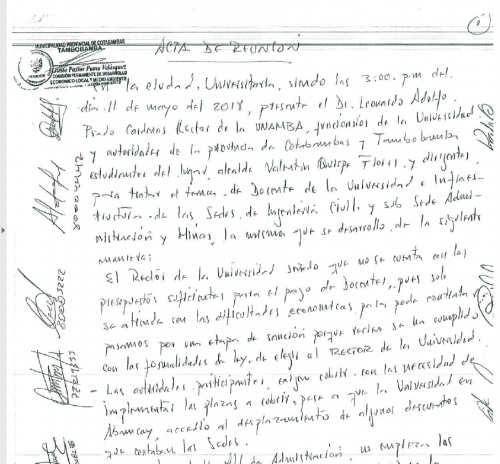 MUNICIPALIDAD PROVINCIAL DE COTABAMBAS
TAMBOBAMBA
Pastor Puma Velásquez
COMISIÓN PERMANENTE DE DESARROLLO
ECONOMICO LOCAL Y MEDIO AMBIENTE
ACTA DE REUNION
En la ciudad, Universitaria, siendo las 3:00. p.m del.
día 11 de mayo del 2018, presente el Dr. Leonardo Adolfo.
Prado Cardenas Rector de la UNAMBA, funcionarios de la Universidad
y autoridades de la provincia de Cotabambas y Tambobamba
estudiantes del lugar, alcalde Valentin Quispe Flores, y dirigentes.
para tratar el tema de Docente de la Universidad e Infraes-
tructura de las Sedes de Ingeniería Civil, y sub Sede Admi-
nistración y Minas, la misma que se desarrollo de la siguiente
manera:
El Rector de la Universidad señalo que no se cuenta con los
presupuestos suficientes para el pago de Docentes, pues solo
se atienda con las dificultades economicas para poder contratar
pasamos por una etapa de sanción porque recien se ha cumplido
con las formalidades de ley, de elegir al RECTOR de la Universidad.
- Las autoridades participantes, exigen cubrir con las necesidad de
implementar las plazas a cubrir, pese a que la Universidad en
Abancay, accedio al desplazamiento de algunos
que contaban las Sedes.
de Administración,